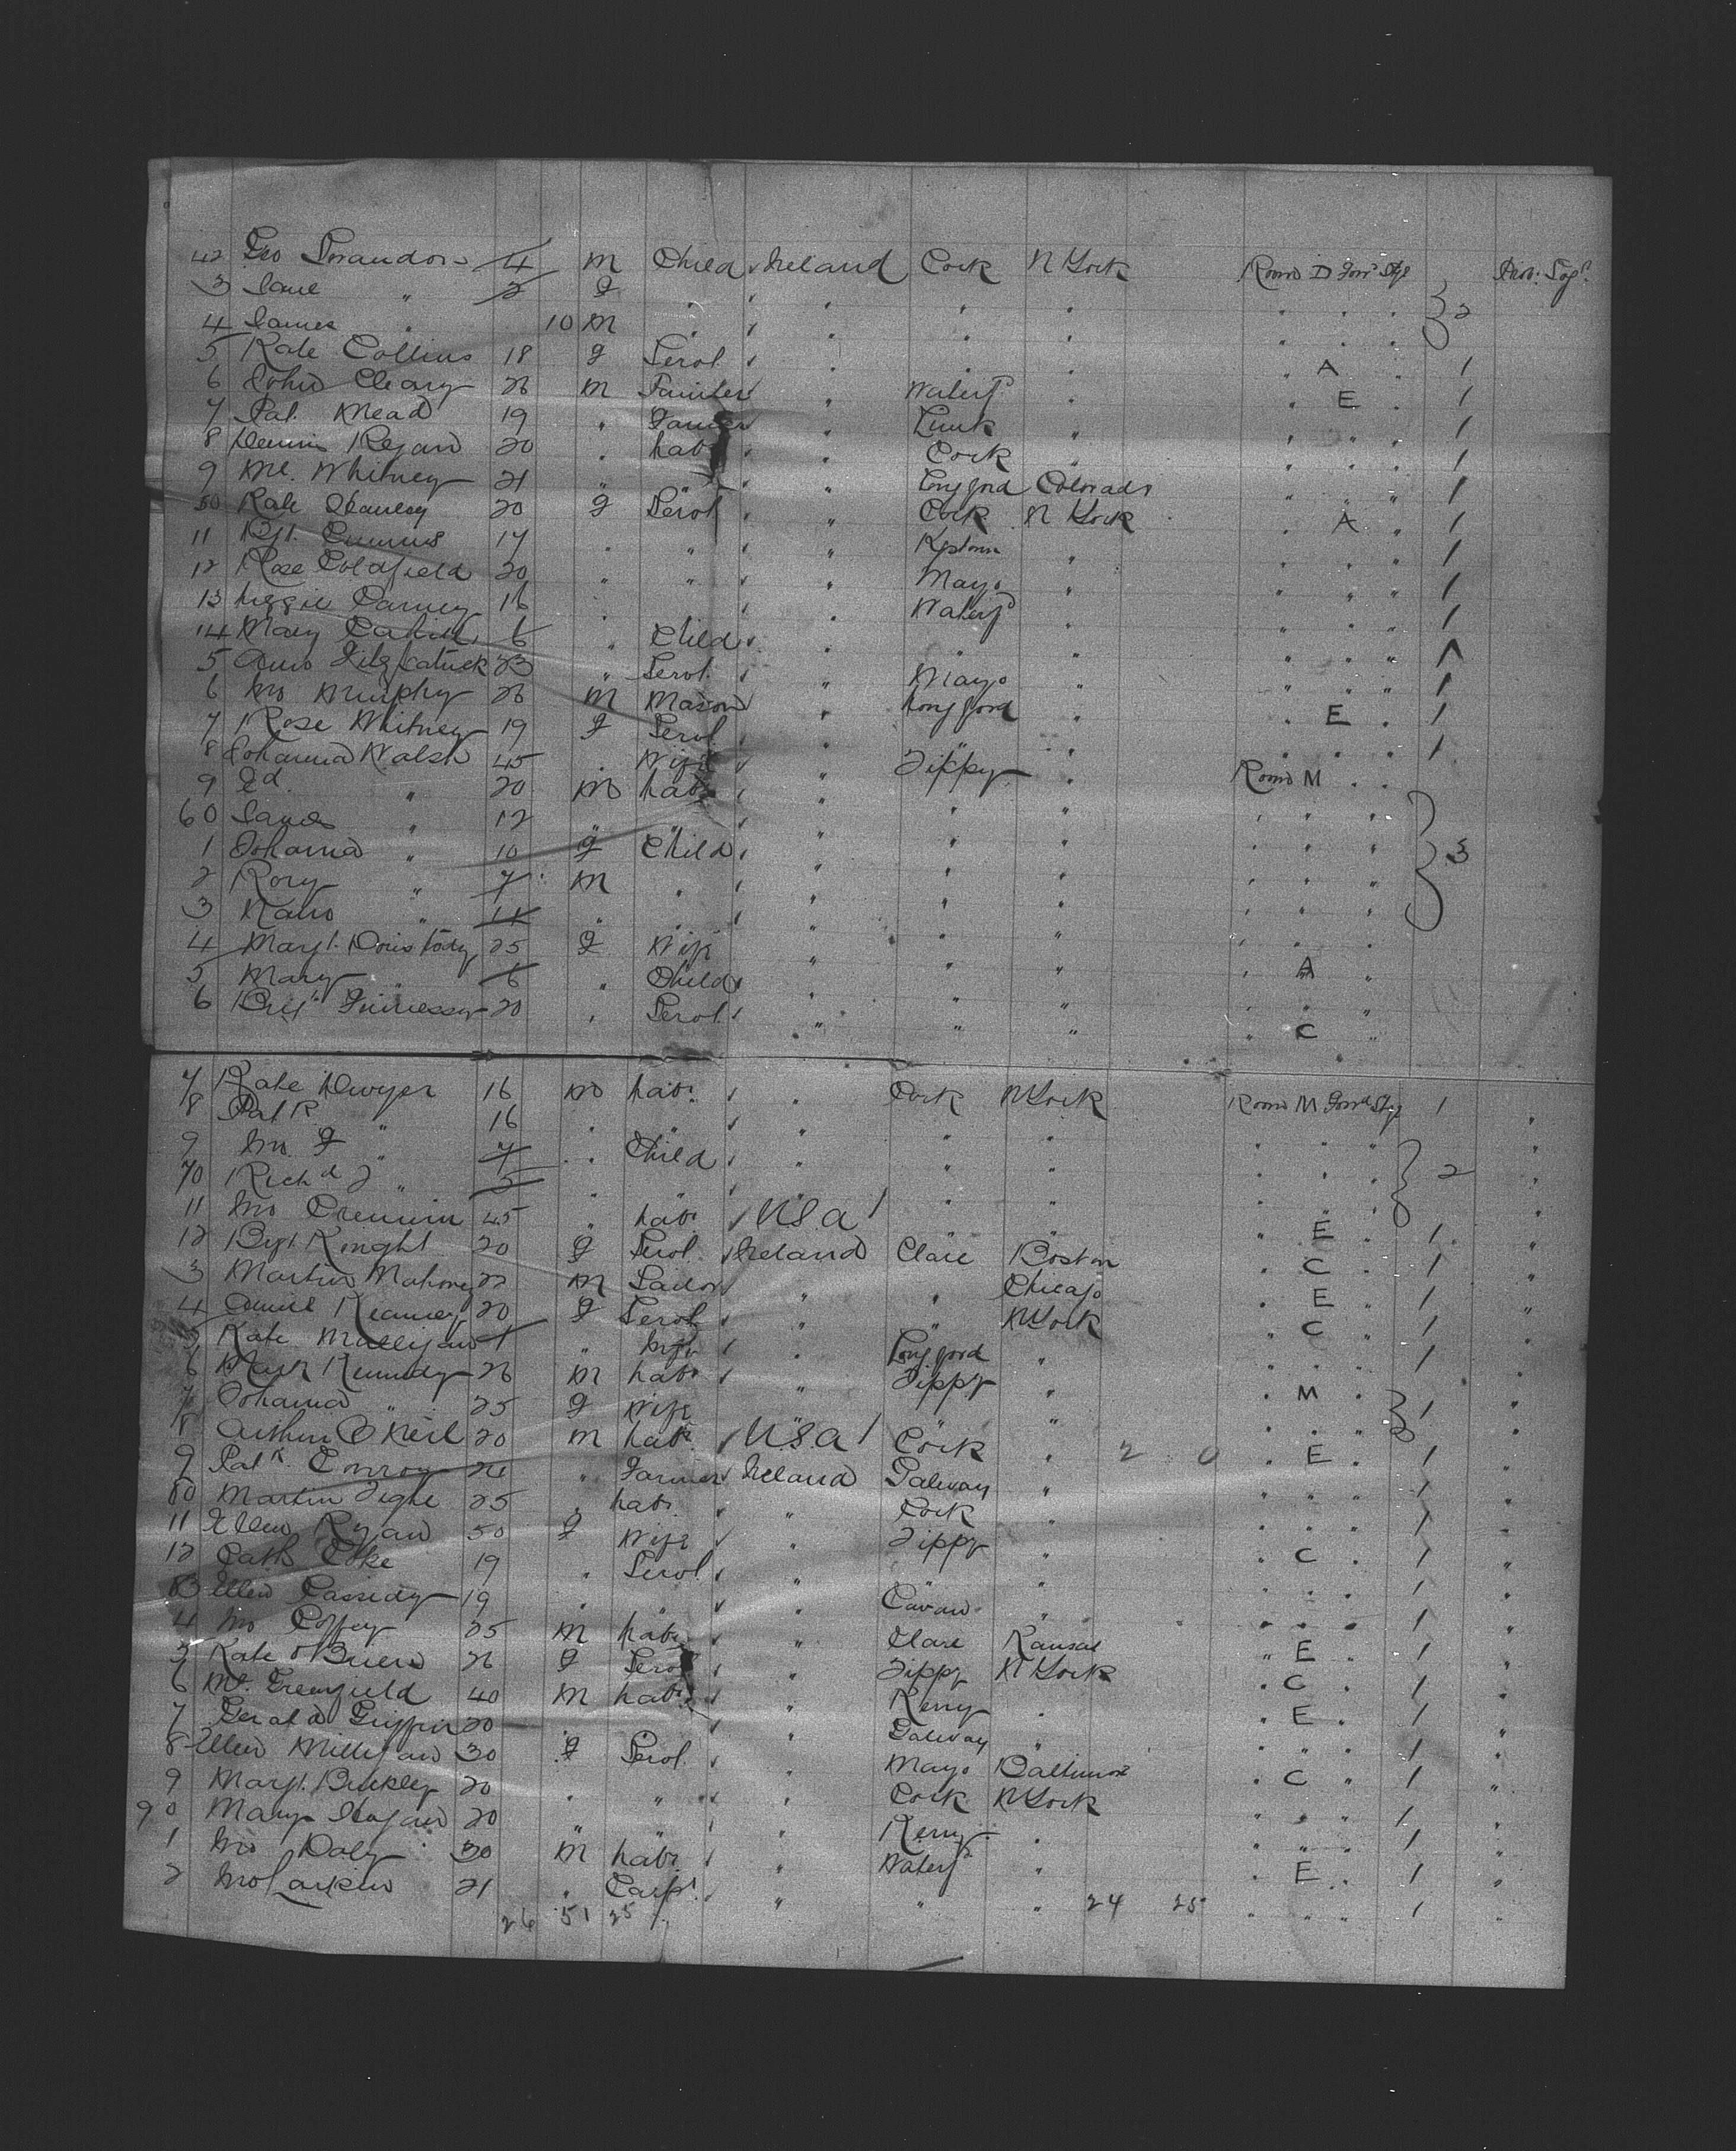 42 Geo 4 M Child Ireland Cork N York Room D Forwd Stge
3 Jane " 2 F " " " " " " "
4 James " 10 M " " " " " " " 2
5 Kate Collins 18 F Servt " " " " A " 1
6 John Cleary 26 M Painter " Waterfd " " E " 1
7 Pat. Mead 19 " Farmer " Limk " " " " 1
8 Dennis Regan 20 " Labr " Cork " " " " 1
9 Ml. Whitney 21 " " " Longford Colorado " " " 1
50 Kate 20 F Servt " Cork N York " A " 1
11 Bgt. 17 " " " " " " " 1
12 Rose Coldfield 20 " " " Mayo " " " " 1
13 Lizzie Carney 16 " " Waterfd " " " " 1
14 Mary Cahill 6 " Child " " " " " "
5 Ann Fitzpatrick 23 " Servt " Mayo " " " " 1
6 Jno Murphy 26 M Mason " Longford " " E " 1
7 Rose Whitney 19 F Servt " " " " " " 1
8 Johanna Walsh 45 " Wife " Tippy " Room M " "
9 Ed. " 20 M Labr " " " " " "
60 James " 12 " " " " " " " "
1 Johanna " 10 F Child " " " " " " 3
2 Rory " 7 M " " " " " " "
3 " 11 " " " " " " " "
4 Margt. 25 F Wife " " " " A "
5 Mary " 6 " Child " " " " " "
6 20 " Servt " " " " C "
7 Kate Dwyer 16 M Labr " Cork N York Room M Forwd Stge 1 "
8 Patk " 16 " " " " " " " " "
9 Jno F " 7 " Child " " " " " " 2 "
70 Richd J " 5 " " " " " " " " "
11 Jno Cremin 45 " Labr U.S.A " " " E " 1 "
12 Bgt. Knight 20 F Servt Ireland Clare Boston " C " 1 "
3 Martin Mahoney 22 M Tailor " " Chicago " E " 1 "
4 Annie Kearney 20 F Servt " " N York " C " 1 "
5 Kate Mulligan " Wife " Longford " " " " 1
6 Kennedy 26 M Labr " Tippy " " M "
7 Johanna " 25 F Wife " " " " " " 1 "
8 Arthur O'Neil 20 M Labr U.S.A Cork " 2 0 " E " 1 "
9 Patk. Conroy 26 " Farmer Ireland Galway " " " " 1 "
80 Martin Tighe 25 " Labr " Cork " " " " 1 "
11 Ellen Ryan 50 F Wife " Tippy " " C " 1 "
12 Cath Coke 19 " Servt " " " " " " 1 "
83 Ellen Cassidy 19 " " " Cavan " " " " 1 "
4 Jno Coffey 25 M Labr " Clare Kansas " E " 1 "
5 Kate O'Brien 26 F Servt " Tippy N York " C " 1 "
6 Ml. Greenfield 40 M Labr " Kerry " " E " 1 "
7 Gerald Griffin 20 " " " Galway " " " " 1 "
8 Ellen Milligan 30 F Servt " Mayo Baltimore " C " 1 "
9 Margt. Buckley 20 " " " Cork N York " " " 1 "
90 Mary Hogan 20 " " " Kerry " " " " 1 "
1 Jno Daly 30 M Labr " Waterfd " " E " 1 "
2 Jno Larkin 21 " Carpr " " " 24 25 " " " 1 "
26 51 25